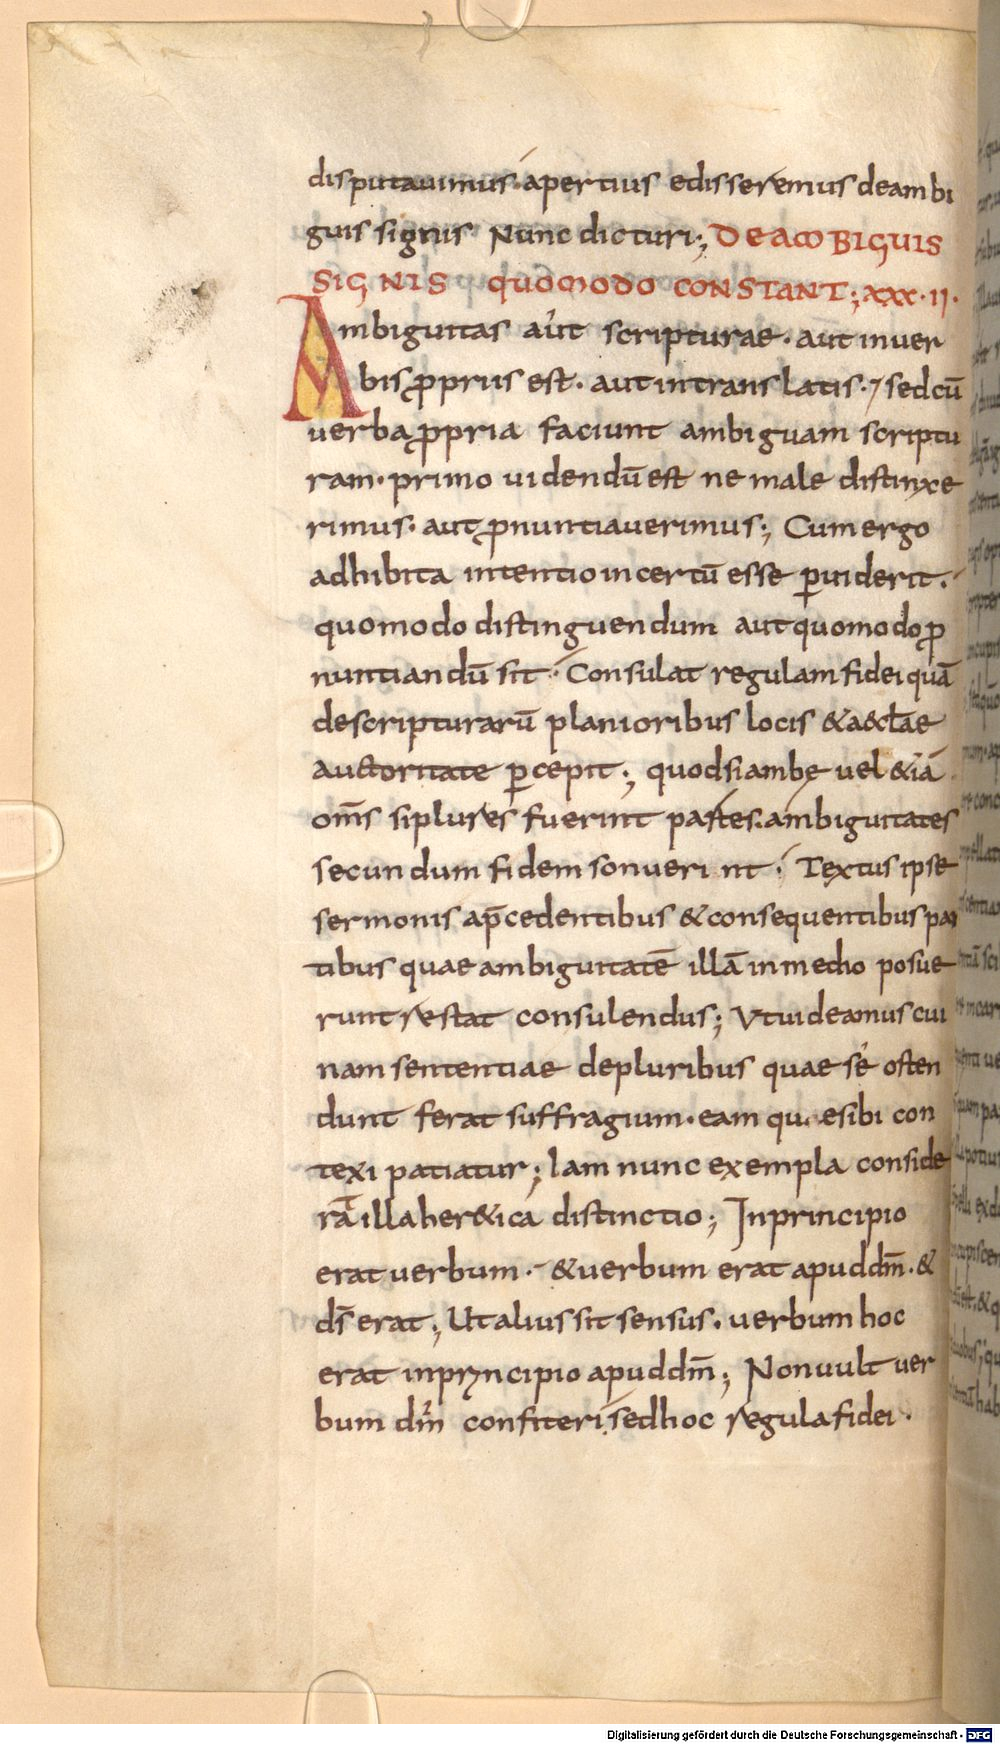 disputauimus· apertius edisseremus deambi
guis signis Nunc dicturi; DE AMBIGUIS
SIGNIS QUOMODO CONSTANT; XXX·II·
Ambiguitas aut scripturae· aut inuer
bis ꝓpriis est· aut intranslatis·⁊ sedcū
uerba ꝓpria faciunt ambiguam scriptu
ram· primo uidendū est ne male distinxe
rimus· aut ꝓnuntiauerimus; Cum ergo
adhibita intentio incertū esse ꝑuiderit·
quomodo distinguendum aut quomodo ꝓ
nuntiandū sit· Consulat regulam fidei quā
descripturarū planioribus locis &aecłae
auctoritate ꝑcepit; quodsi ambę uel &iā
om̄s si plures fuerint partes· ambiguitates
secundum fidem sonuerint· Textus ipse
sermonis ap̄cedentibus & consequentibus par
tibus quae ambiguitatē illā inmedio posue
runt restat consulendus; Vt uideamus cui
nam sententiae depluribus quae se osten
dunt ferat suffragium· eam quae sibi con
texi patiatur; Iam nunc exempla conside
ra illa her&ica distinctio; Inprincipio
erat uerbum· & uerbum erat apud dm̄· &
ds̄ erat; Ut alius sit sensus· uerbum hoc
erat inpryncipio apud dm̄; Non uult uer
bum dm̄ confiteri· sed hoc regula fidei·
Digitalisierung gefördert durch die Deutsche Forschungsgemeinschaft - DFG